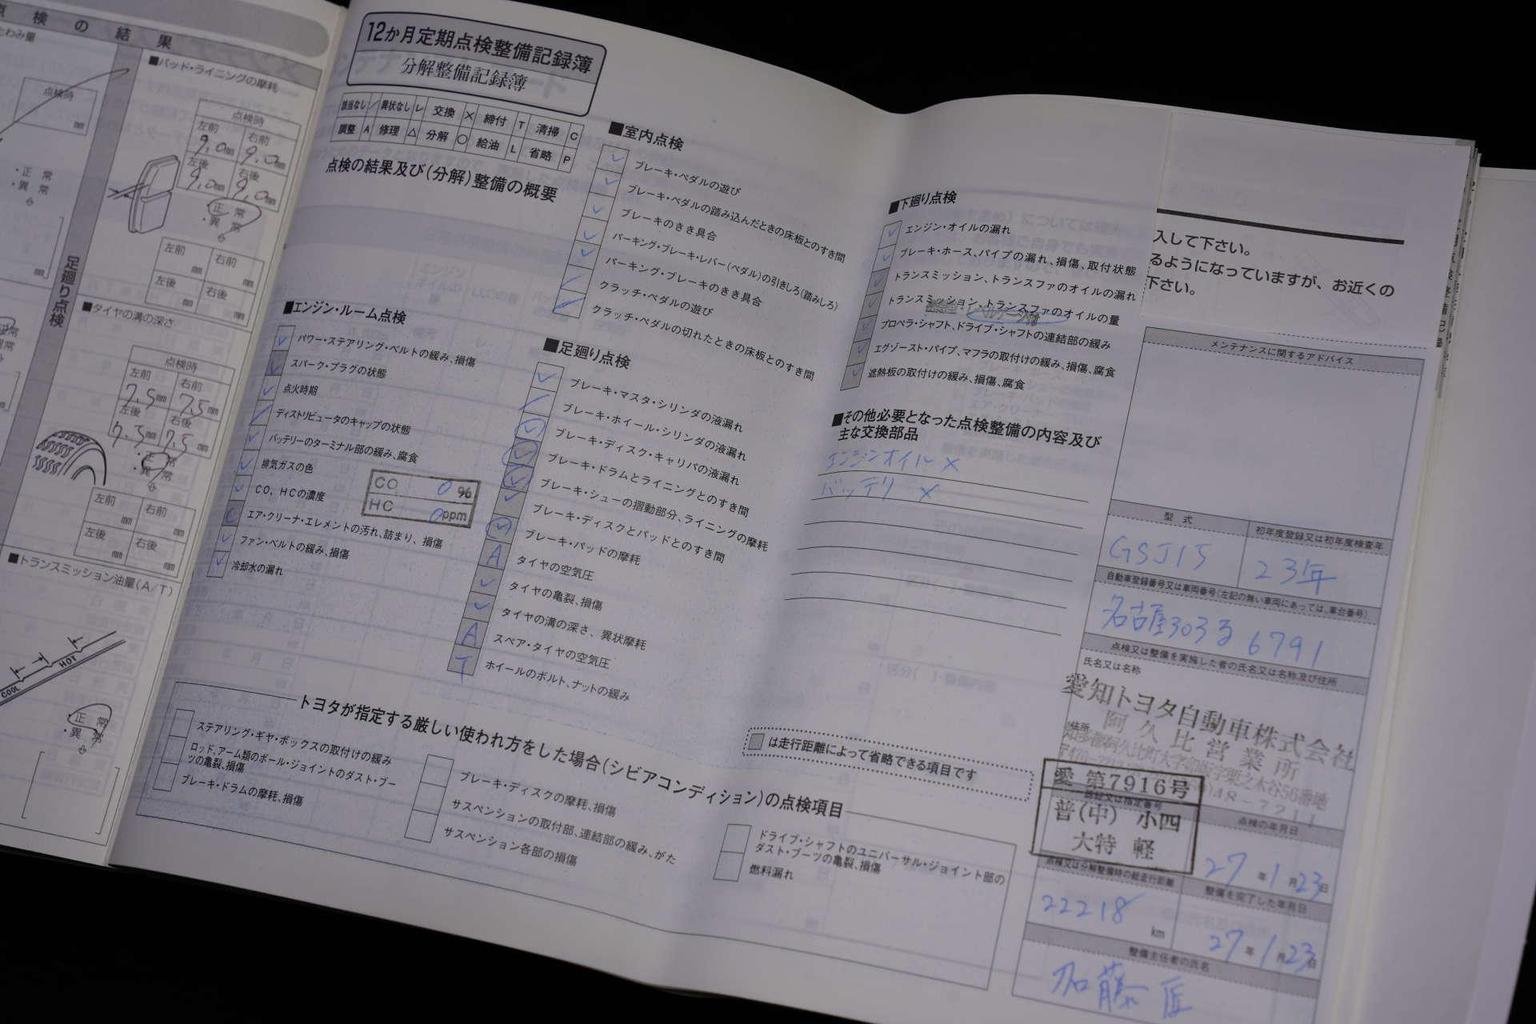 検の結果
■パッド・ライニングの摩耗
点検時
点検時
左前 右前
9.0mm 9.0mm
左後 右後
9.0mm 9.0mm
・正常
・異常
・正常
・異常
左前 右前
mm mm
左後 右後
mm mm
足廻り点検
■タイヤの溝の深さ
点検時
左前 右前
7.5mm 7.5mm
左後 右後
7.5mm 7.5mm
左前 右前
mm mm
左後 右後
mm mm
■トランスミッション油量(A/T)
HOT
COOL
・正常
・異常
12か月定期点検整備記録簿
分解整備記録簿
該当なし / 異状なし レ 交換 × 締付 T 清掃 C
調整 A 修理 △ 分解 ○ 給油 L 省略 P
点検の結果及び(分解)整備の概要
■エンジン・ルーム点検
パワー・ステアリング・ベルトの緩み、損傷
スパーク・プラグの状態
点火時期
ディストリビュータのキャップの状態
バッテリーのターミナル部の緩み、腐食
排気ガスの色
CO、HCの濃度
CO 0 %
HC 0 ppm
エア・クリーナ・エレメントの汚れ、詰まり、損傷
ファン・ベルトの緩み、損傷
冷却水の漏れ
■室内点検
ブレーキ・ペダルの遊び
ブレーキ・ペダルの踏み込んだときの床板とのすき間
ブレーキのきき具合
パーキング・ブレーキ・レバー(ペダル)の引きしろ(踏みしろ)
パーキング・ブレーキのきき具合
クラッチ・ペダルの遊び
クラッチ・ペダルの切れたときの床板とのすき間
■足廻り点検
ブレーキ・マスタ・シリンダの液漏れ
ブレーキ・ホイール・シリンダの液漏れ
ブレーキ・ディスク・キャリパの液漏れ
ブレーキ・ドラムとライニングとのすき間
ブレーキ・シューの摺動部分、ライニングの摩耗
ブレーキ・ディスクとパッドとのすき間
ブレーキ・パッドの摩耗
A タイヤの空気圧
タイヤの亀裂、損傷
タイヤの溝の深さ、異状摩耗
A スペア・タイヤの空気圧
T ホイールのボルト、ナットの緩み
■下廻り点検
エンジン・オイルの漏れ
ブレーキ・ホース、パイプの漏れ、損傷、取付状態
トランスミッション、トランスファのオイルの漏れ
トランスミッション、トランスファのオイルの量
プロペラ・シャフト、ドライブ・シャフトの連結部の緩み
エグゾースト・パイプ、マフラの取付けの緩み、損傷、腐食
遮熱板の取付けの緩み、損傷、腐食
■その他必要となった点検整備の内容及び
主な交換部品
エンジンオイル ×
バッテリ ×
は走行距離によって省略できる項目です
トヨタが指定する厳しい使われ方をした場合(シビアコンディション)の点検項目
ステアリング・ギヤ・ボックスの取付けの緩み
ロッド、アーム類のボール・ジョイントのダスト・ブーツの亀裂、損傷
ブレーキ・ドラムの摩耗、損傷
ブレーキ・ディスクの摩耗、損傷
サスペンションの取付部、連結部の緩み、がた
サスペンション各部の損傷
ドライブ・シャフトのユニバーサル・ジョイント部の
ダスト・ブーツの亀裂、損傷
燃料漏れ
入して下さい。
るようになっていますが、お近くの
下さい。
メンテナンスに関するアドバイス
型式 初年度登録又は初年度検査年
GSJ15 23年
自動車登録番号又は車両番号(左記の無い車両にあっては、車台番号)
名古屋303る6791
点検又は整備を実施した者の氏名又は名称及び住所
氏名又は名称
愛知トヨタ自動車株式会社
阿久比営業所
愛 第7916号
普(中) 小四
大特 軽
点検の年月日
27年1月23日
点検又は分解整備時の総走行距離 整備を完了した年月日
22218 km 27年1月23日
整備主任者の氏名
加藤 匡